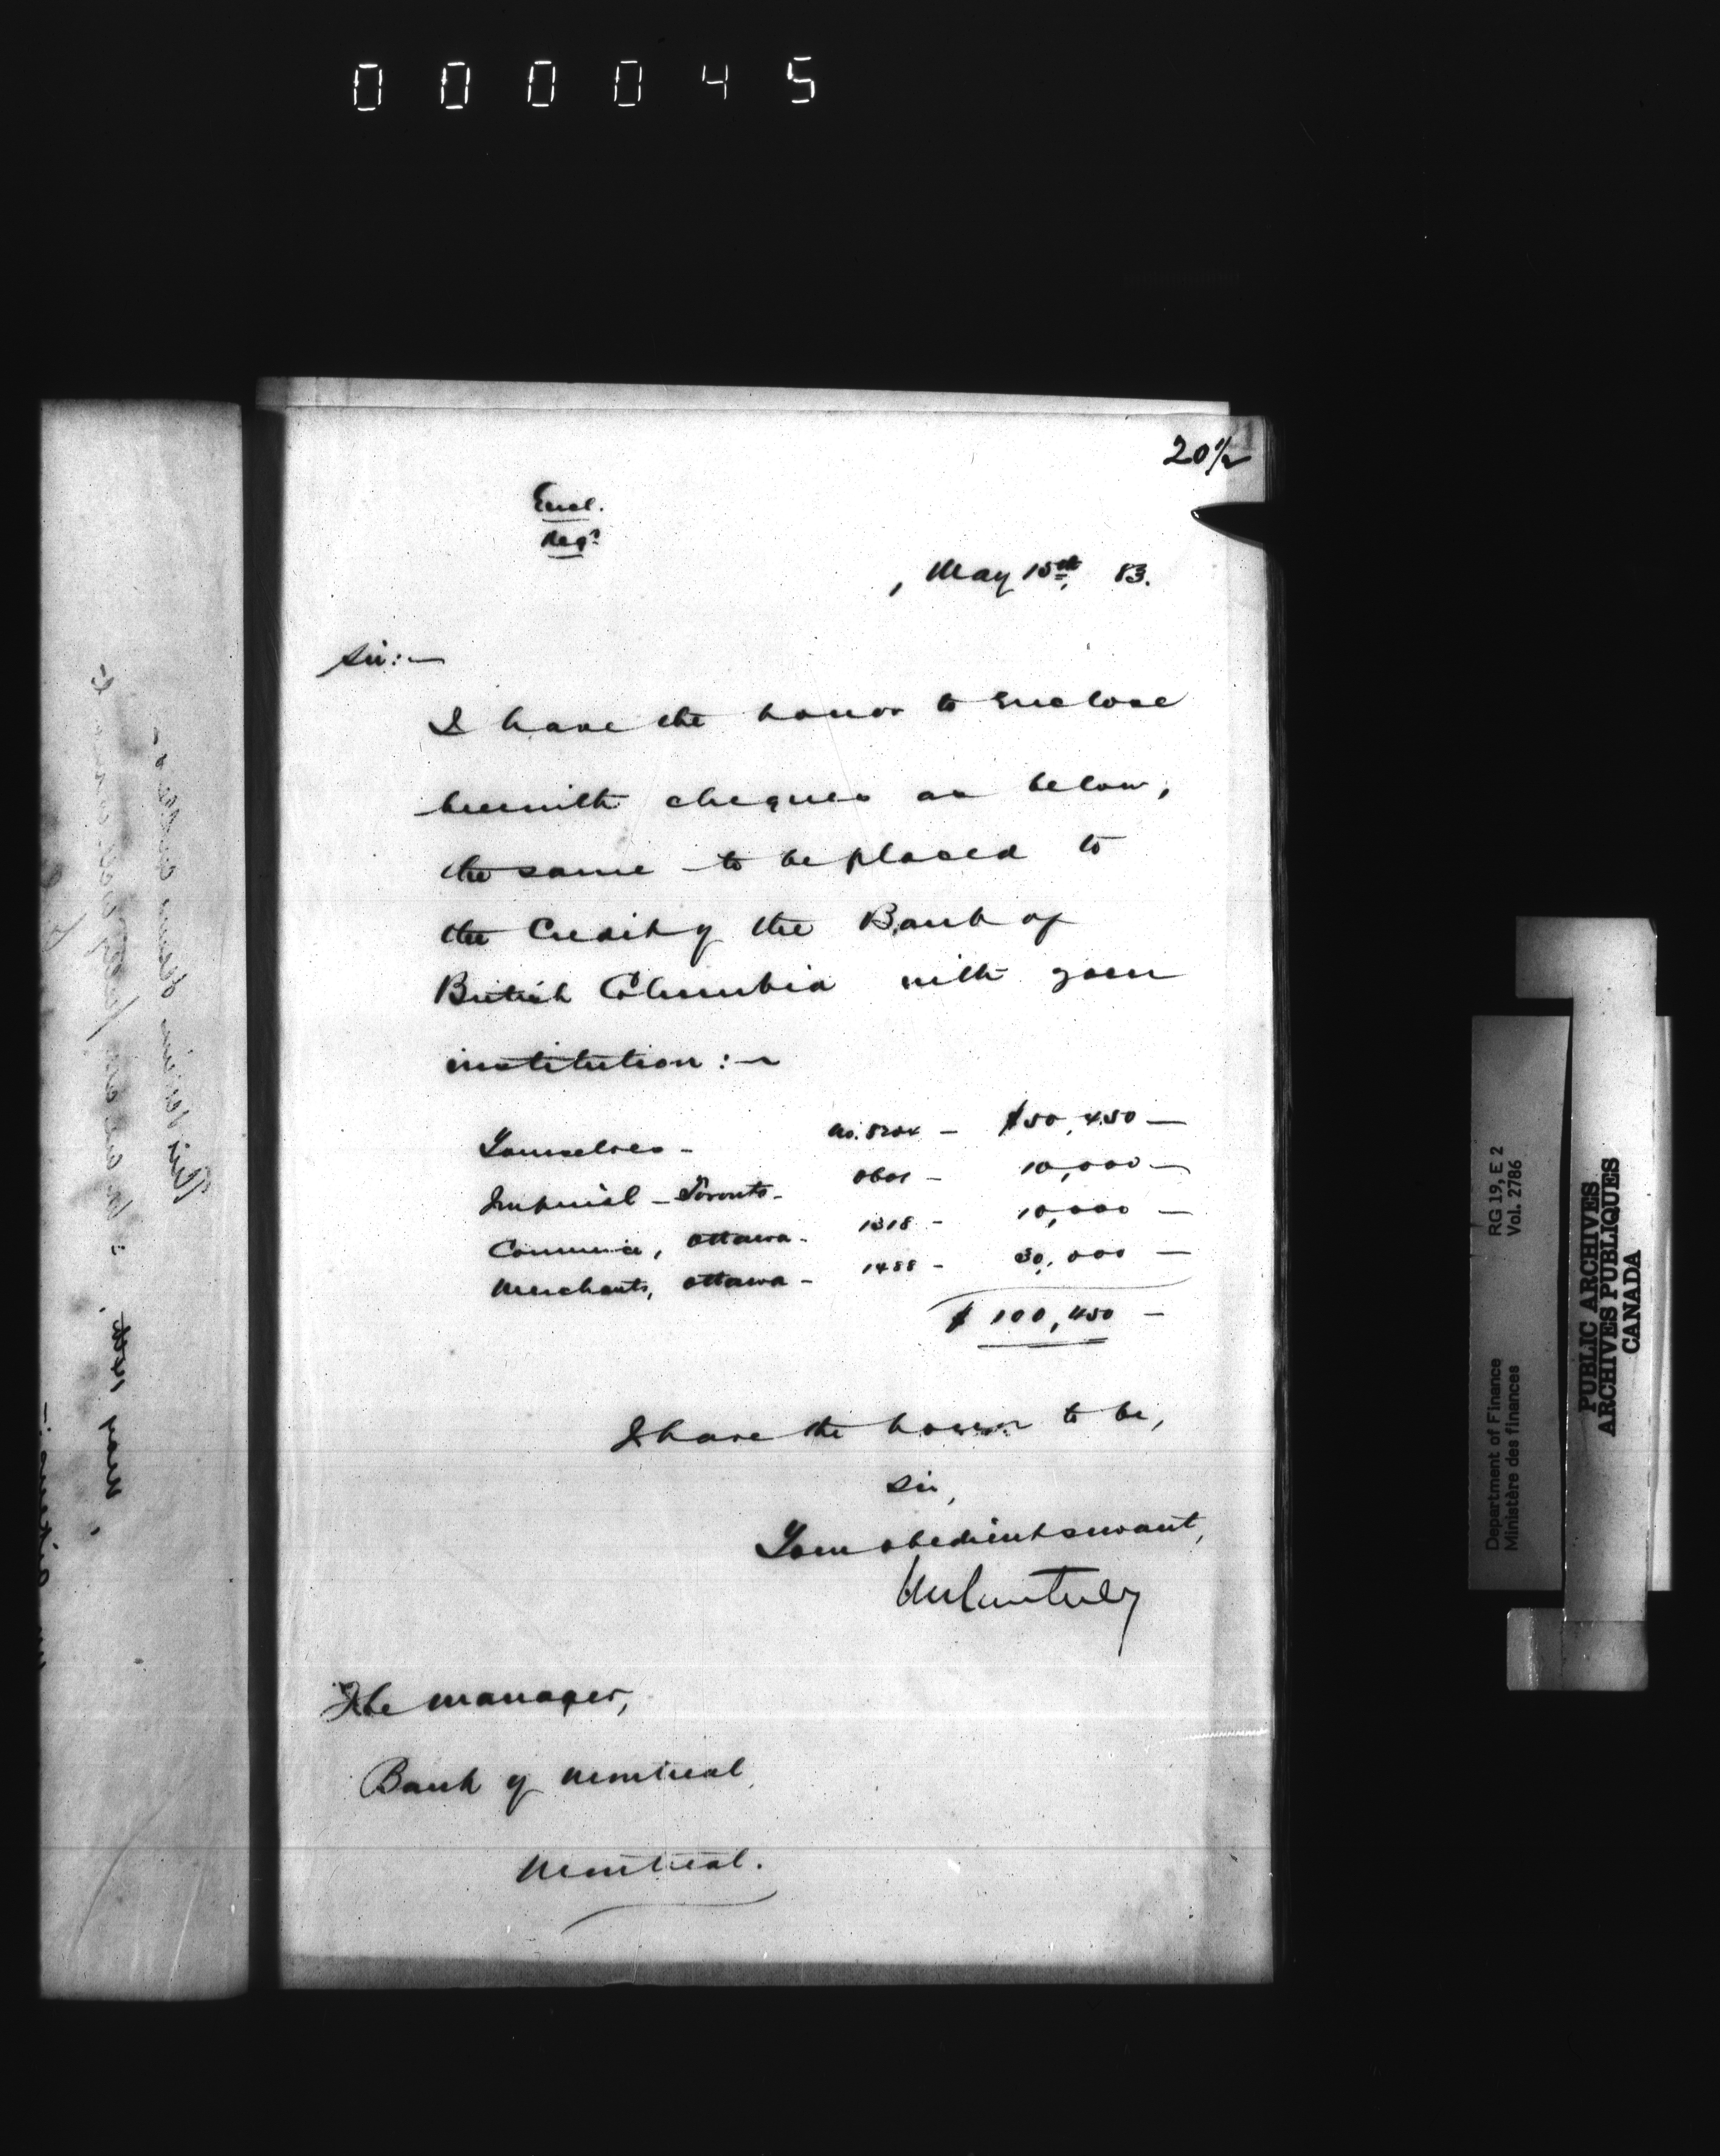 000045
20½
21
Encl.
Regd
, May 15th, 83.
Sir:—
I have the honor to enclose
herewith cheques as below,
the same to be placed to
the Credit of the Bank of
British Columbia with your
institution:—
Yourselves - No. — $50,450 —
Imperial - Toronto - — 10,000 —
Commerce, Ottawa - 1318 - 10,000 —
Merchants, Ottawa - 1488 - 30,000 —
$ 100,450 —
I have the honor to be,
Sir,
Your obedient servant,
The Manager,
Bank of Montreal,
Montreal.
May
RG 19, E 2
Vol. 2786
Department of Finance
Ministère des finances
PUBLIC ARCHIVES
ARCHIVES PUBLIQUES
CANADA